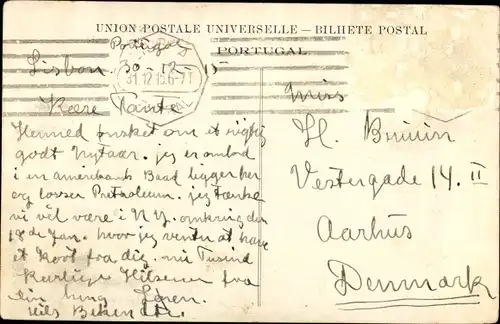 UNION POSTALE UNIVERSELLE — BILHETE POSTAL
PORTUGAL
Portugal
Lisbon 30-12-15
31.12.15.6-T
Kære Tante
Hermed ønsket om et rigtig
godt Nytaar. jeg er ombord
i en amerikansk Baad ligger her
og losser Pretroleum. jeg tænker
vi vel være i N.Y. omkring den
18de Jan. hvor jeg venter at have
et Kort fra dig. nu Tusind
Kærlige Hilsener fra
din heng Søren.
Miss
H. Bruun
Vestergade 14. II
Aarhus
Denmark